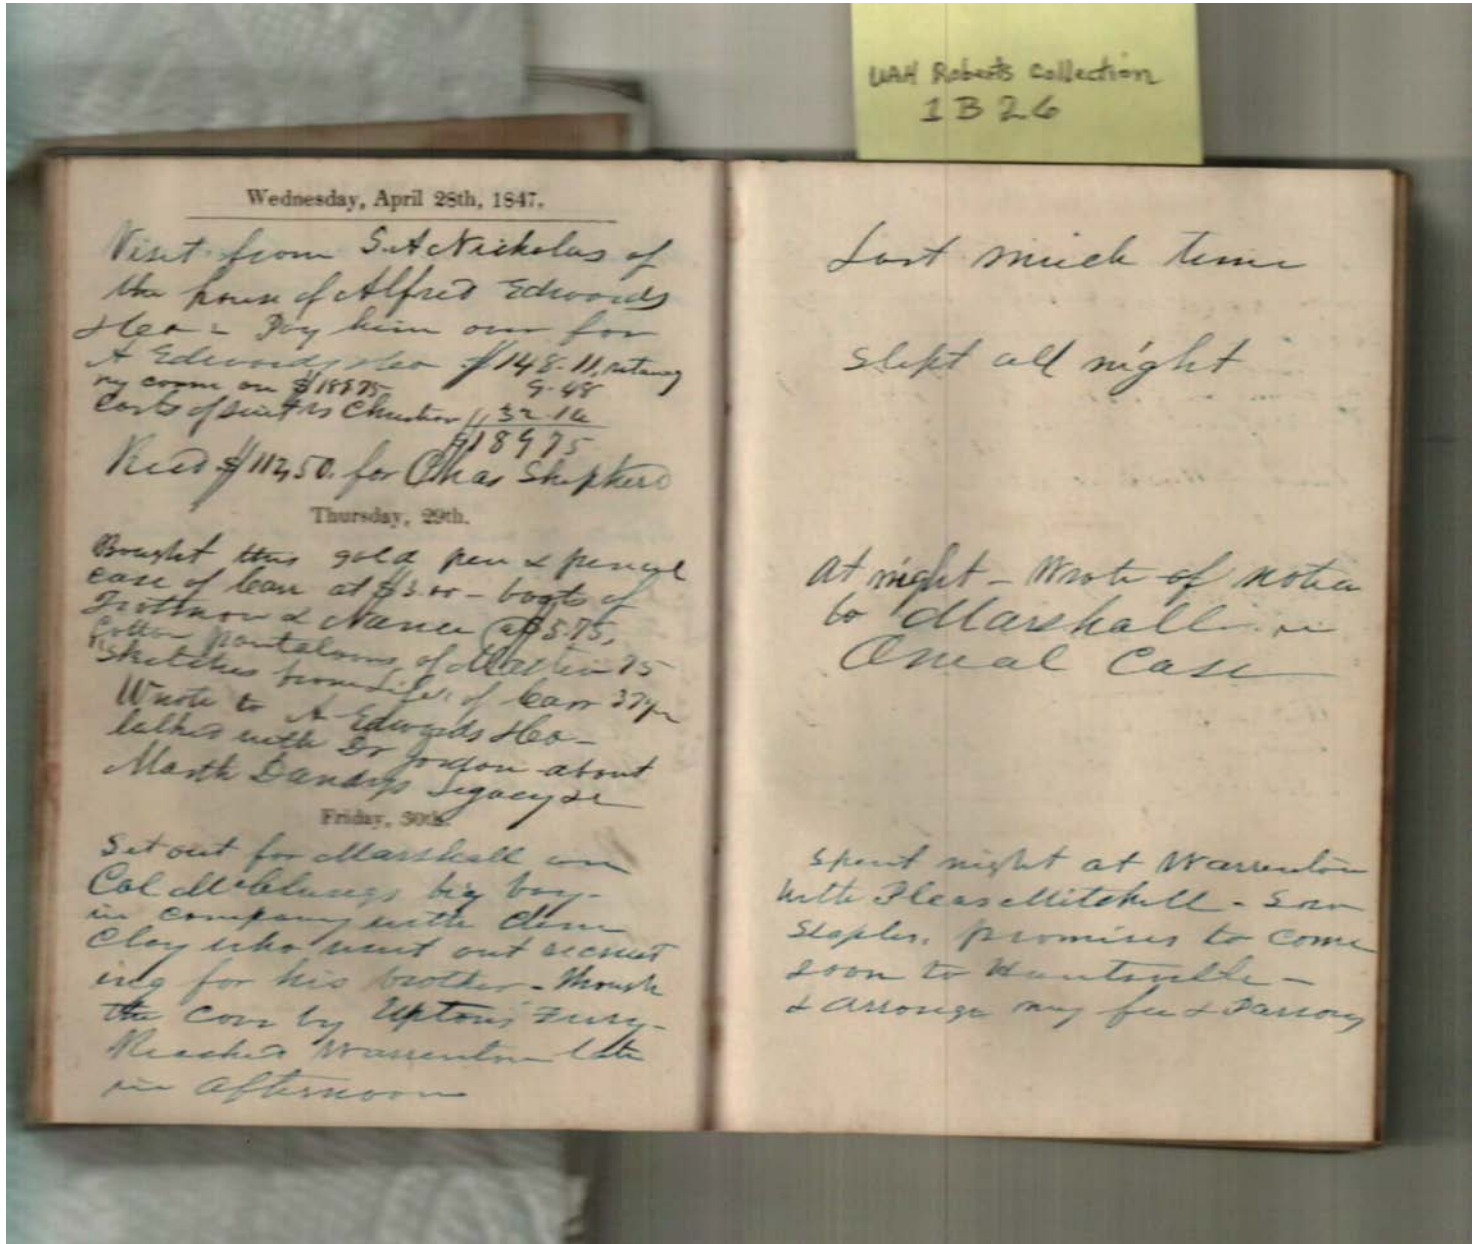 UAH Roberts Collection
1 B 26
Wednesday, April 28th, 1847.
Visit from S. A Nicholas of
the house of Alfred Edwards
&co - Pay him over for
A Edwards &co $148.11, retaing
my comm on $18975 9.48
Costs of suit vs 32.16
$18975
Recd $112,50. for Chas Shepherd
Thursday, 29th.
Bought this gold pen & pencil
case of Carr at $3.00 - boots of
Trottman & Nance at $5.75,
Cotton pantaloons, of Martin 75
Sketches from life, of Carr 37
Wrote to A Edwards &co -
talked with Dr Jordon about
Legacy &c
Friday, 30th.
Set out for Marshall on
Col McClungs big bay -
in company with Clem
Clay who went out recruit
ing for his brother - through
the Cove by Upton's Ferry -
Reached Warrenton late
in afternoon
Lost much time
Slept all night
At night - Wrote of notice
to Marshall in
Oneal Case
Spent night at Warrenton
with Pleas Mitchell - Saw
Staples, promises to come
soon to Huntsville -
& arrange my fee & Parsons